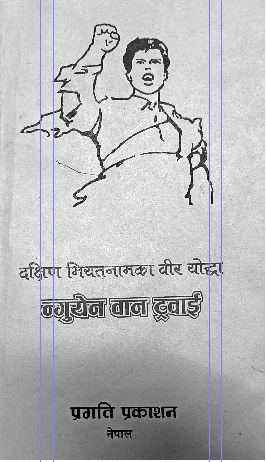 दक्षिण भियतनामका वीर योद्धा
न्गुयेन वान ट्रवाई
प्रगति प्रकाशन
नेपाल